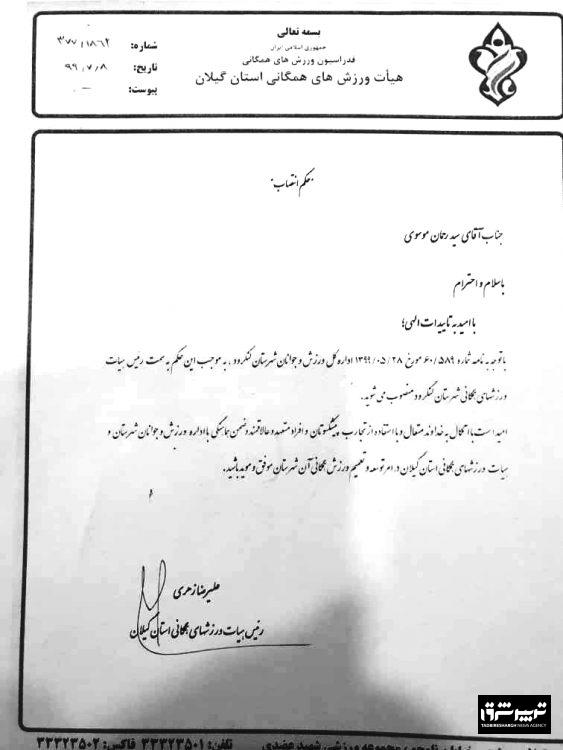 بسمه تعالی
جمهوری اسلامی ایران
فدراسیون ورزش های همگانی
هیأت ورزش های همگانی استان گیلان
شماره: ۳۷۷/۱۸۶۲
تاریخ: ۹۹/۷/۸
پیوست: -
"حکم انتصاب"
جناب آقای سید رحمان موسوی
باسلام و احترام
با امید به تاییدات الهی؛
با توجه به نامه شماره ۶۰/۵۸۹ مورخ ۱۳۹۹/۰۵/۲۸ اداره کل ورزش و جوانان شهرستان لنگرود، به موجب این حکم به سمت رئیس هیات
ورزشهای همگانی شهرستان لنگرود منصوب می شوید.
امید است با اتکال به خداوند متعال و با استفاده از تجارب پیشکسوتان و افراد متعهد و علاقمند و ضمن هماهنگی با اداره ورزش و جوانان شهرستان و
هیات ورزشهای همگانی استان گیلان در امر توسعه و تعمیم ورزش همگانی آن شهرستان موفق و موید باشید.
علیرضا زهری
رئیس هیات ورزشهای همگانی استان گیلان
مجموعه ورزشی شهید عضدی تلفن: ۳۳۳۲۳۵۰۱ فاکس: ۳۳۳۲۳۵۰۲
تدبیرشرق
TADBIRESHARGH NEWS AGENCY